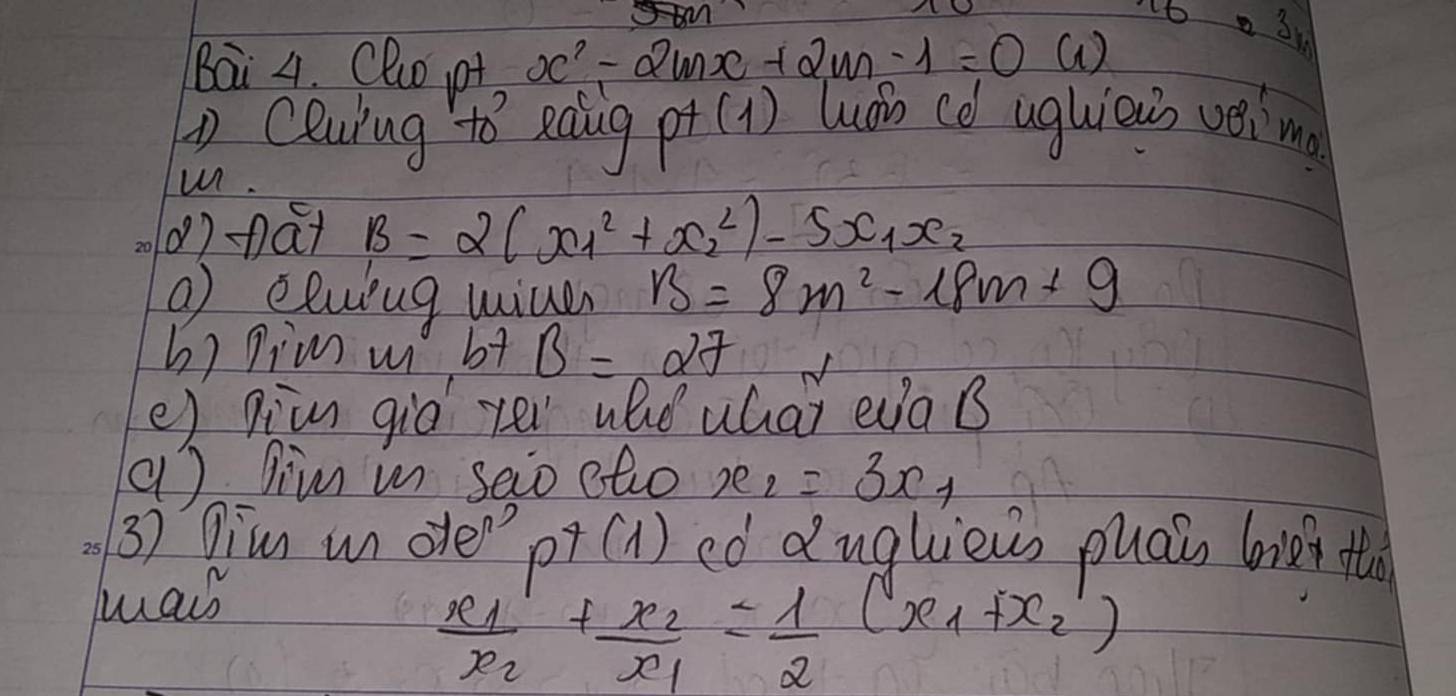 Bài 4. Cho pt x² - 2mx + 2m - 1 = 0 (1)
1) Chứng tỏ rằng pt (1) luôn có nghiệm với mọi
m.
20 2) Đặt B = 2(x₁² + x₂²) - 5x₁x₂
a) Chứng minh B = 8m² - 18m + 9
b) Tìm m bt B = 27
c) Tìm giá trị nhỏ nhất của B
d) Tìm m sao cho x₂ = 3x₁
25 3) Tìm m để pt (1) có 2 nghiệm phân biệt thỏa
mãn x₁/x₂ + x₂/x₁ = 1/2 (x₁ + x₂)